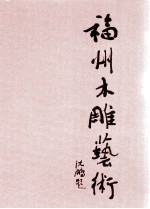 福州木雕藝術
沈鵬題